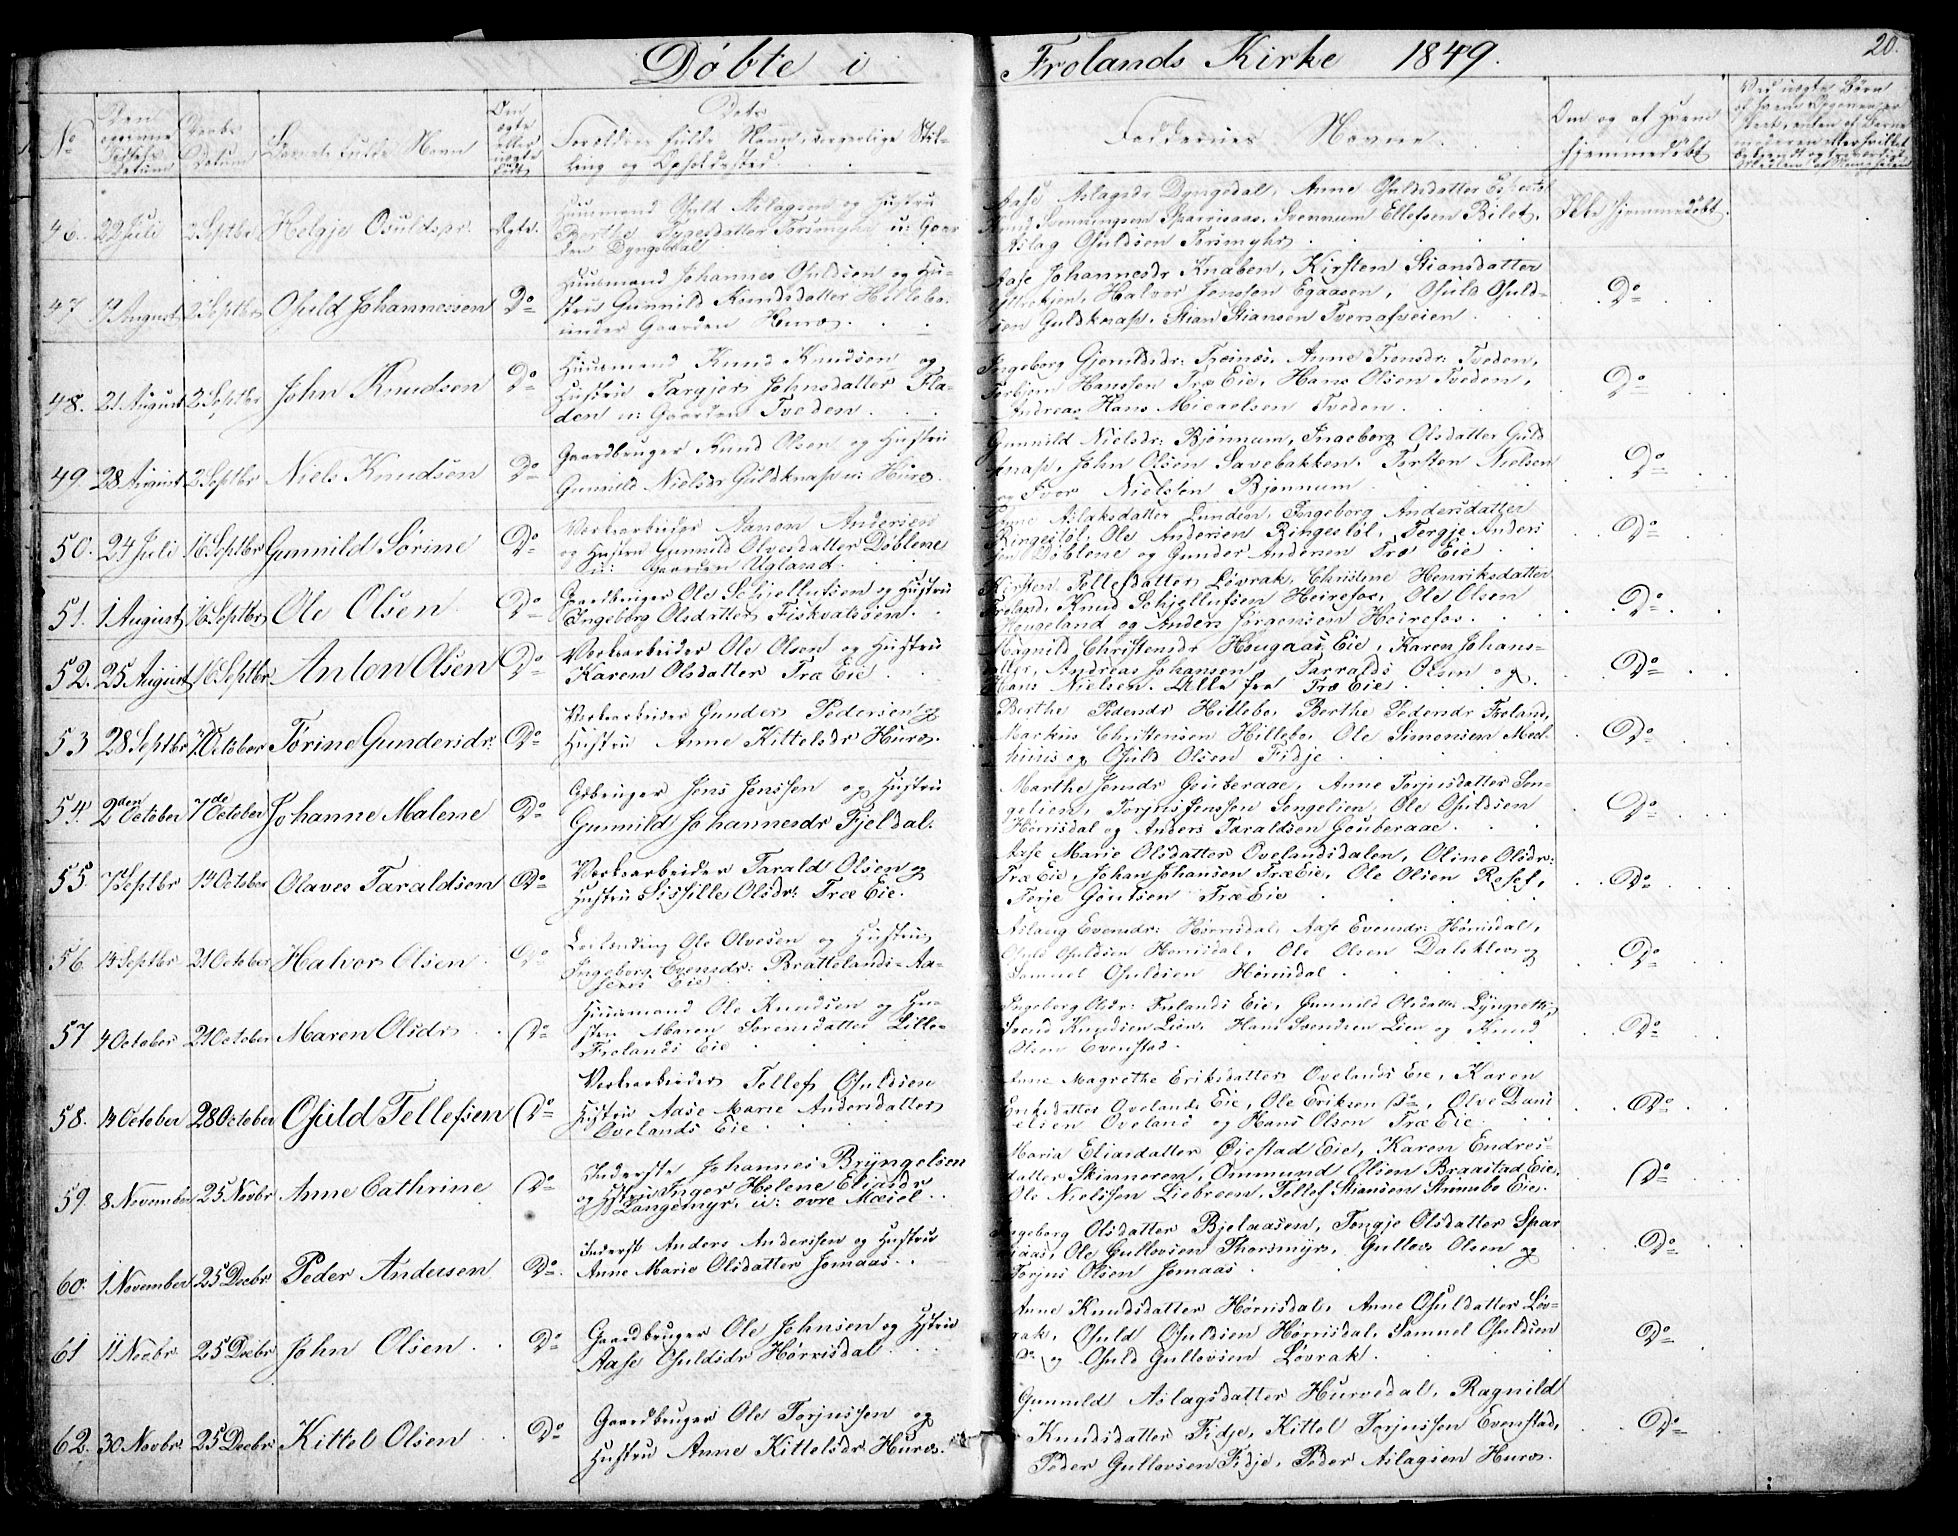 Døbte i Frolands Kirke 1849.
20.
No
Dens
Fødsels
Datum
Daabs
Datum
Barnets fulde Navn
Om
ægte
eller
uægte
født
Dets
Forældres fulde Navn, borgerlige Stil-
ling og Opholdssted
Faddernes Navne
Om og af hvem
hjemmedøbt
46. 22 Juli 2 Septbr Helgje Osuldsdr. Ægte.
Huusmand Osuld Aslagsen og Hustru
Berthe Tygesdatter Torsmyhr u: Gaar
den Dyngedal
Aase Aslagsdr Dyngedal, Anne Osuldsdatter
Svenningsen Sparrisaas, Svennum Ellefsen Bilet,
Aslag Osuldsen Torsmyhr
Ikke hjemmedøbt.
47. August 2 Septbr Osuld Johannessen Do
Huusmand Johannes Osuldsen og Hu-
stru Gunnild Knudsdatter Hillebo
under Gaarden Huro.
Aase Johannesdr Knaben, Kirsten Stiansdatter
Halvor Jenssen Egaasen, Osuld Osuld-
sen Guldknap, Stian Stiansen Tvenafveien
Do
48. 21 August 2 Septbr John Knudsen Do
Huusmand Knud Knudsen og
Hustru Targjer Johnsdatter Fla-
den u: Gaarden Tveden.
Ingeborg Gjeruldsdr: Treinæs, Anne Tronsdr: Tveden,
Torbjørn Hanssen Træ Eie, Hans Olsen Tveden,
Andreas Hans Micaelsen Tveden.
Do
49 28 August 2 Septbr Niels Knudsen Do
Gaardbruger Knud Olsen og Hustru
Gunnild Nielsdr Guldknap u: Huro.
Gunnild Nielsdr: Bjønnum, Ingeborg Olsdatter Guld
knap, John Olsen Savebakken. Torsten Nielsen
og Ivor Nielsen Bjønnum.
Do
50. 24 Juli 16 Septbr Gunnild Sorine Do
Verksarbeider Aanon Andersen
og Hustru Gunnild Olvesdatter Døblene
u: Gaarden Ugland.
Aslaksdatter Lunden, Ingeborg Andersdatter
Ringestøl, Ole Andersen Ringestøl, Tergje Anders
sen Døblene og Gunder Andersen Træ Eie
Do
51. 1 August 16 Septbr Ole Olsen Do
Gaardbruger Ole Schjellufsen og Hustru
Ingeborg Olsdatter Fiskvatsøen.
Kirsten Tellefsdatter Løvrak, Christine Henriksdatter
Froland, Knud Schjellufsen Heirefos, Ole Olsen
Hougeland og Anders Jørgensen Heirefos.
Do
52. 25 August 16 Septbr Anton Olsen Do
Verksarbeider Ole Olsen og Hustru
Karen Olsdatter Træ Eie
Magnild Christensdr Hougaas Eie, Karen Johans-
dtter, Andreas Johansen, Tarralds Olsen og
Hans Nielsen. Alle fra Træ Eie
Do
53 28 Septbr 7 October Torine Gundersdr. Do
Verksarbeider Gunder Pedersen og
Hustru Anne Kittelsdr Huro.
Berthe Pedersdr Hillebo, Berthe Pedersdr Froland,
Markus Christensen Hillebo, Ole Simonsen Mel-
huus og Osuld Olsen Fidje.
Do
54. 2den October 7de October Johanne Malene Do
Gbruger Jens Jenssen og Hustru
Gunnild Johannesdr Fjeldal.
Marthe Jensdr Gouberaae, Anne Torjusdatter Son-
gelien, Torjus Jenssen Songelien, Ole Osuldsen
Hørrisdal og Anders Taraldsen Gouberaae.
Do
55 7 Septbr 14 October Olaves Taraldsen Do
Verksarbeider Tarald Olsen og
Hustru Sissille Olsdr: Træ Eie.
Aase Marie Olsdatter Ovelandsdalen, Oline Olsdr:
Træ Eie, Johan Johansen Træ Eie, Ole Olsen Rosef,
Terje Goutsen Træ Eie
Do
56. 14 Septbr 21 October Halvor Olsen Do
Lænding Ole Olvesen og Hustru
Ingeborg Evensdr: Brattelands-Aa-
sens Eie
Aslaug Evensdr: Hørrisdal, Aase Evensdr: Hørrisdal,
Osuld Osuldsen Hørrisdal, Ole Olsen Dalsklev og
Samuel Osuldsen Hørrisdal
Do
57 4 October 21 October Maren Olsdr Do
Huusmand Ole Knudsen og Hu-
stru Maren Sørensdatter Lille-
Frolands Eie
Ingeborg Olsdr: Frolands Eie, Gunnild Olsdatter Lyngrott,
Svend Knudsen Lien, Hans Svendsen Lien og Knud
Olsen Evenstad.
Do
58. 14 October 28 October Osuld Tellefsen Do
Verksarbeider Tellef Osuldsen
Hustru Aase Marie Andersdatter
Ovelands Eie
Anne Magrethe Eriksdatter Ovelands Eie, Karen
Eriksdatter Ovelands Eie, Ole Eriksen Do, Olve Dani
elsen Oveland og Hans Olsen Træ Eie
Do
59. 8 November 25 Novbr Anne Cathrine Do
Inderste Johannes Bryngelsen
og Hustru Inger Helene Eliasdr
Langemyr. u: øvre Mæsel
Maria Eliasdatter Øiestad Eie, Karen Endres-
datter Skimneren, Ommund Olsen Braastad Eie,
Ole Nielssen Liebreen, Tellef Stiansen Stennbo Eie.
Do
60. 1 November 25 Decbr Peder Andersen Do
Inderst Anders Anderssen og Hustru
Anne Marie Olsdatter Jomaas.
Ingeborg Olsdatter Bjelaasen, Tengje Olsdatter Spar
saas, Ole Gullovsen Thorsmyr, Gullov Olsen og
Torjus Olsen Jomaas
Do
61 11 Novbr 25 Decbr John Olsen Do
Gaardbruger Ole Johnsen og Hustru
Aase Osuldsdr Hørrisdal
Anne Knudsdatter Hørrisdal, Anne Osuldatter Løv-
rak, Osuld Osuldsen Hørrisdal, Samuel Osuldsen
Do og Osuld Gullovsen Løvrak.
Do
62. 30 Novbr 25 Decbr Kittel Olsen Do
Gaardbruger Ole Torjussen og
Hustru Anne Kittelsdr Huro.
Gunnild Aslagsdatter Hurvedal, Ragnild
Knudsdatter Fidje, Kittel Torjussen Evenstad,
Peder Gullovsen Fidje, Peder Aslagsen Huro.
Do